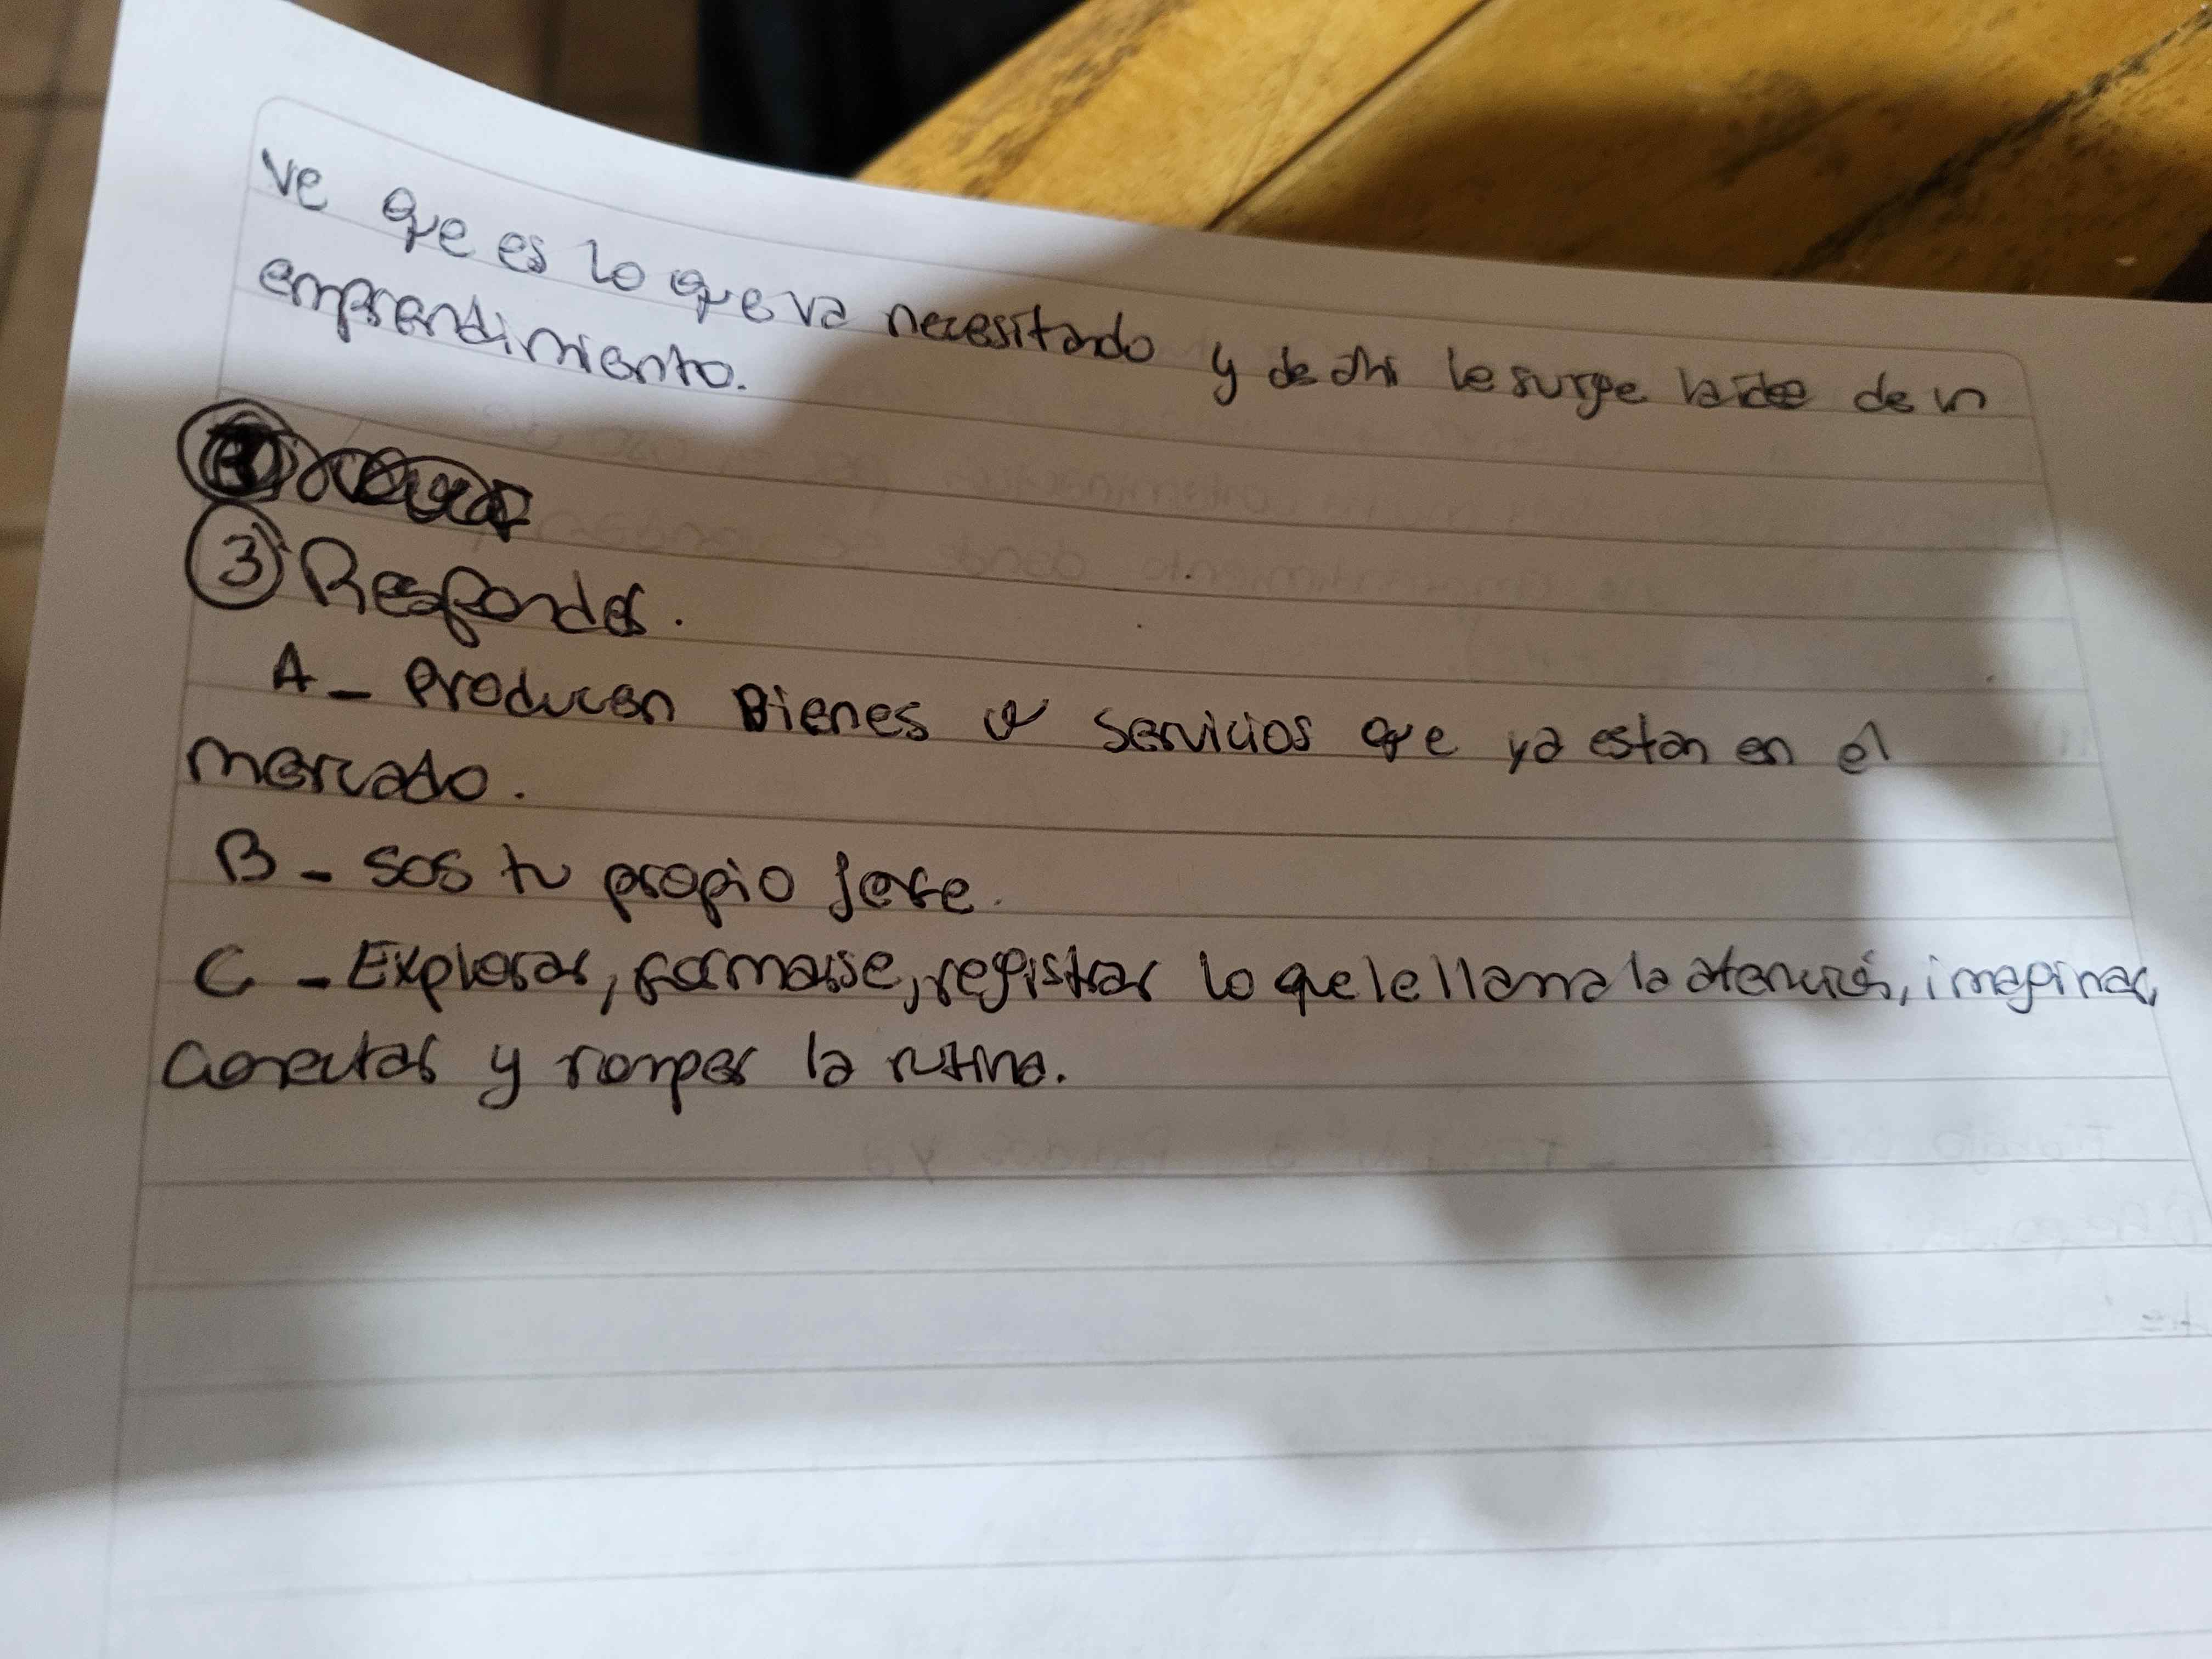 ve que es lo que va necesitado y de ahi le surge la idea de un
emprendimiento.
3 Responder.
A - Producen Bienes o servicios que ya estan en el
mercado.
B - sos tu propio jefe.
C - Explorar, formarse, registrar lo que le llama la atención, imaginar,
conectar y romper la rutina.